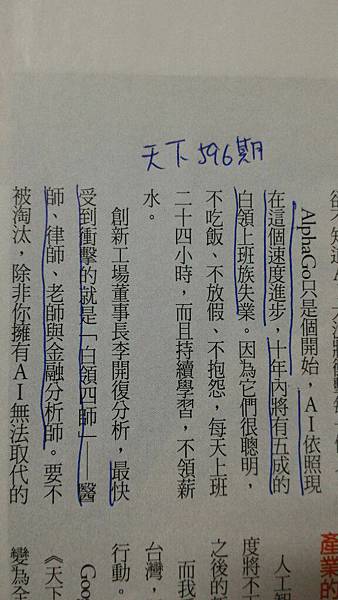 天下 596期
AlphaGo只是個開始，AI依照現
在這個速度進步，十年內將有五成的
白領上班族失業。因為它們很聰明，
不吃飯、不放假、不抱怨，每天上班
二十四小時，而且持續學習，不領薪
水。
創新工場董事長李開復分析，最快
受到衝擊的就是「白領四師」——醫
師、律師、老師與金融分析師。要不
被淘汰，除非你擁有AI無法取代的
產業的
人工智
度將不
之後的
而我
台灣，
行動。
Goo
《天下
變為全